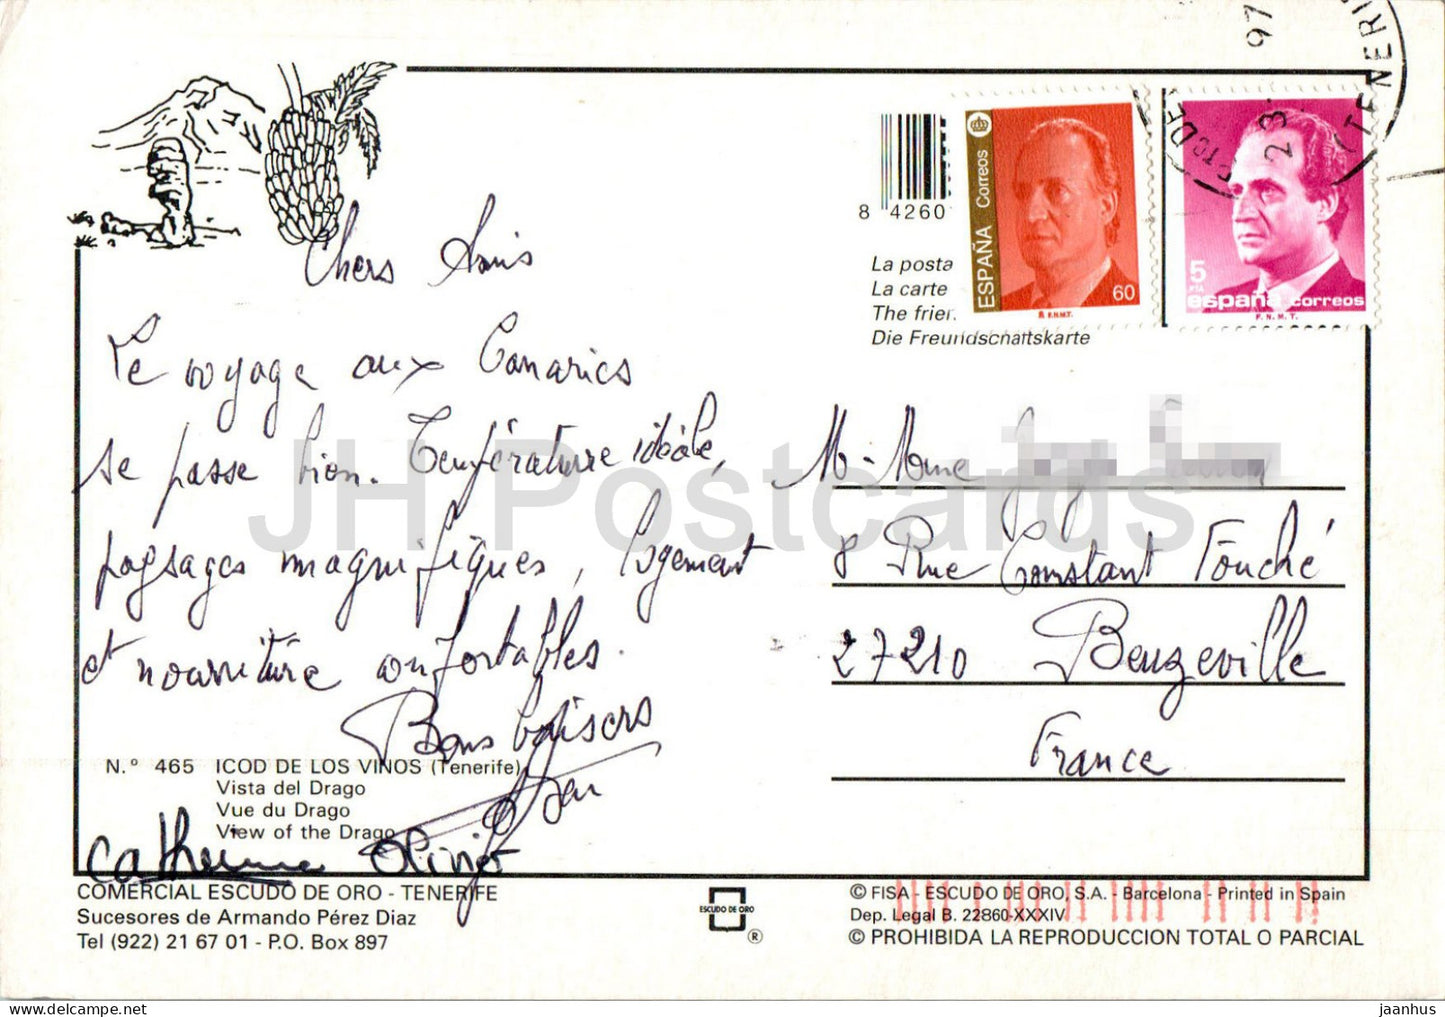 97
23
TENERI
8 4260
ESPAÑA Correos
60
F.N.M.T.
5
PTA
españa correos
F.N.M.T.
La posta
La carte
The frien
Die Freundschaftskarte
Chers Amis
Le voyage aux Canaries
se passe bien. Température idéale,
paysages magnifiques, logement
et nourriture confortables.
Bons baisers
Catherine
M. Mme
8 Rue Constant Fouché
27210 Beuzeville
France
N.º 465 ICOD DE LOS VINOS (Tenerife)
Vista del Drago
Vue du Drago
View of the Drago
COMERCIAL ESCUDO DE ORO - TENERIFE
Sucesores de Armando Pérez Diaz
Tel (922) 21 67 01 - P.O. Box 897
ESCUDO DE ORO
®
© FISA - ESCUDO DE ORO, S.A. - Barcelona - Printed in Spain
Dep. Legal B. 22860-XXXIV
© PROHIBIDA LA REPRODUCCION TOTAL O PARCIAL
JH Postcards
HipPostcard.com